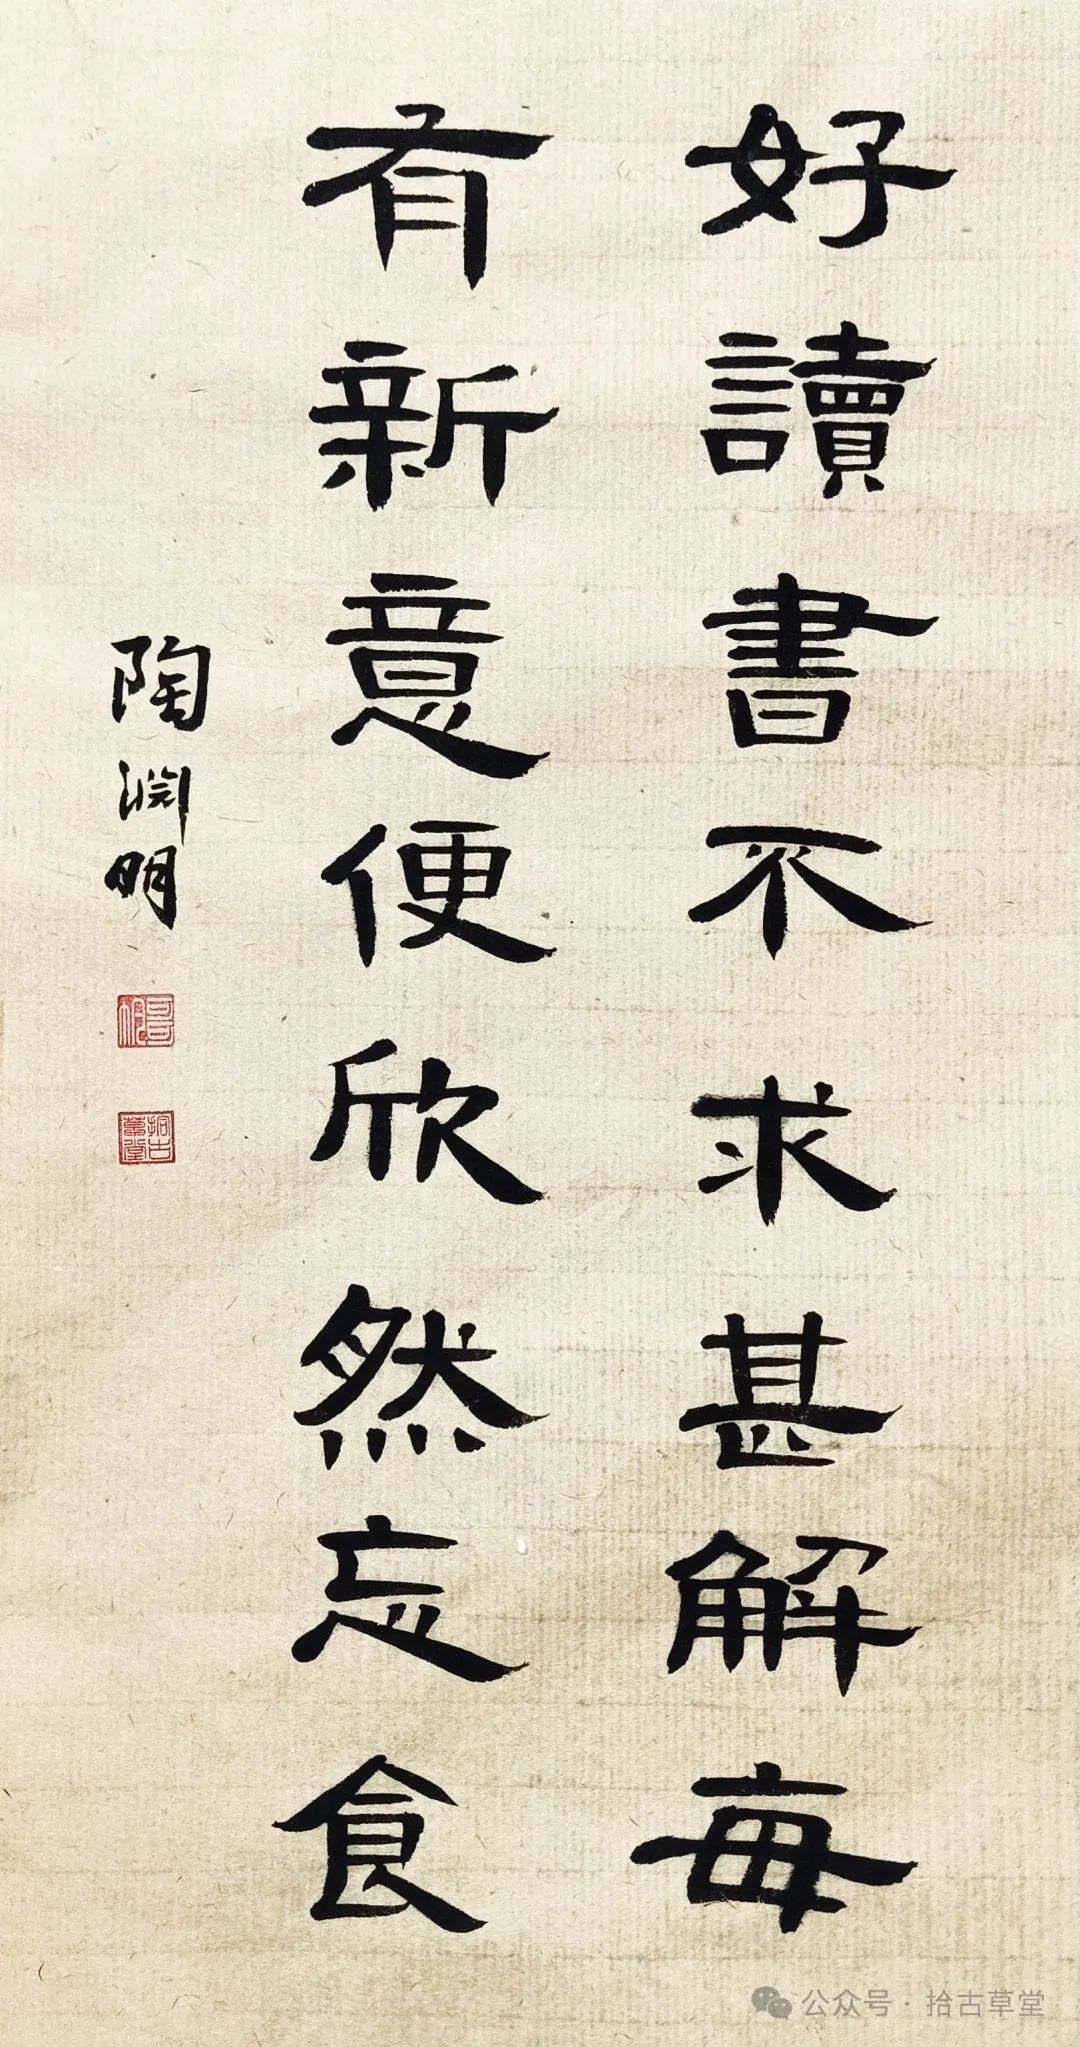 好讀書不求甚解每
有新意便欣然忘食
陶淵明
拾古草堂
公众号·拾古草堂